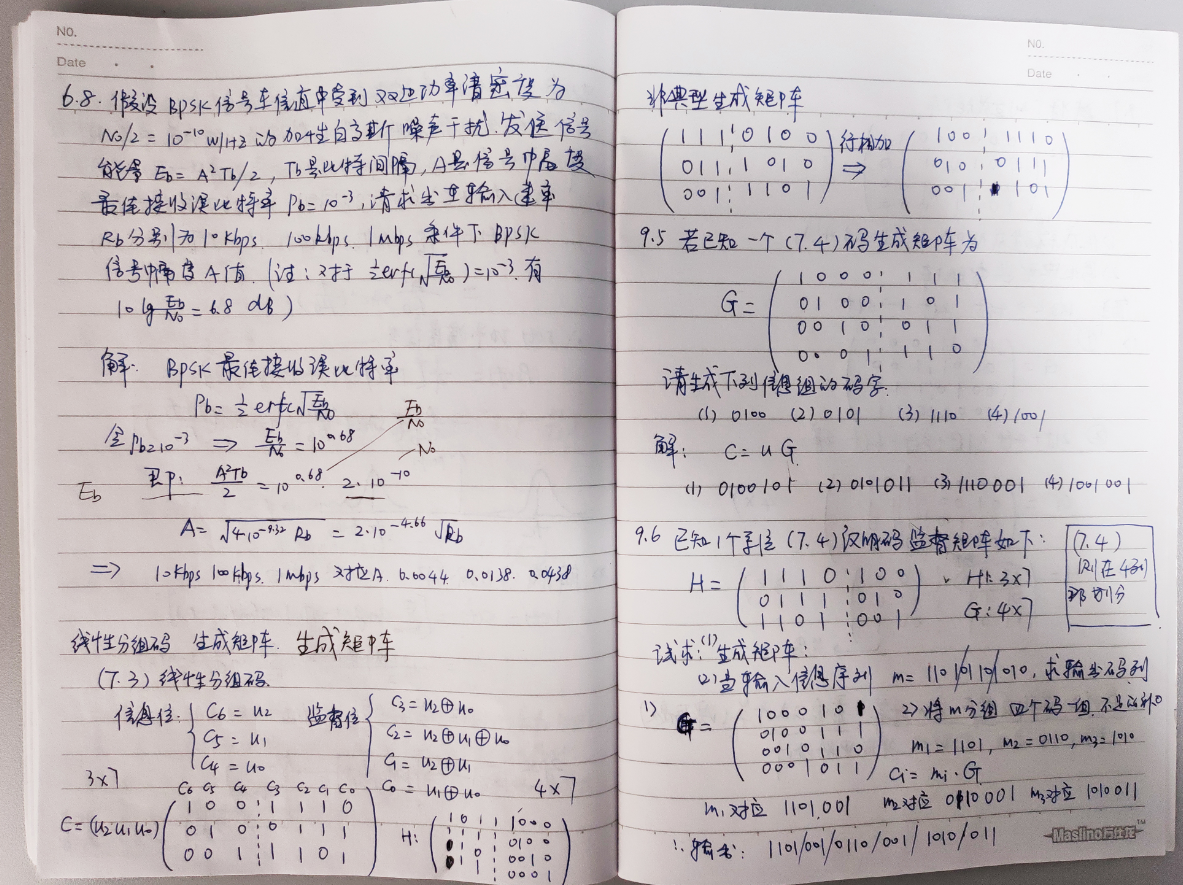 NO.
Date
6.8. 假设 BPSK 信号在信道中受到双边功率谱密度为
N0/2 = 10^-10 W/Hz 的加性白高斯噪声干扰. 发送信号
能量 Eb = A²Tb/2, Tb是比特间隔, A是信号幅度
最佳接收误比特率 Pb = 10^-3, 请求出在输入速率
Rb分别为 10kbps. 100kbps. 1mbps 条件下 BPSK
信号幅度A值. (注: 对于 ½erfc(√(Eb/N0)) = 10^-3. 有
10lg Eb/N0 = 6.8 dB)
解: BPSK最佳接收误比特率
Pb = ½ erfc√(Eb/N0)
Eb/N0
令Pb=10^-3 ⇒ Eb/N0 = 10^0.68
N0
Eb 即: A²Tb/2 = 10^0.68 · 2·10^-10
A = √(4·10^-9.32 Rb) = 2·10^-4.66 √Rb
⇒ 10kbps 100kbps. 1mbps 对应A. 0.0044 0.0138. 0.0438
线性分组码 生成矩阵. 生成矩阵
(7.3) 线性分组码.
信息位: { C6 = u2 监督位 { C3 = u2⊕u0
C5 = u1 C2 = u2⊕u1⊕u0
C4 = u0 C1 = u2⊕u1
3×7 C0 = u1⊕u0 4×7
C6 C5 C4 C3 C2 C1 C0
C = (u2 u1 u0)
1 0 0 1 1 1 0
0 1 0 0 1 1 1
0 0 1 1 1 0 1
H:
1 0 1 1 1 0 0 0
1 1 1 0 1 0 0
1 1 0 0 0 1 0
0 0 0 1
NO.
Date
非典型生成矩阵
1 1 1 0 1 0 0 行相加 1 0 0 1 1 1 0
0 1 1 1 0 1 0 ⇒ 0 1 0 0 1 1 1
0 0 1 1 1 0 1 0 0 1 1 1 0 1
9.5 若已知一个(7.4)码生成矩阵为
G =
1 0 0 0 1 1 1
0 1 0 0 1 0 1
0 0 1 0 0 1 1
0 0 0 1 1 1 0
请生成下列信息组的码字.
(1) 0100 (2) 0101 (3) 1110 (4) 1001
解: C = u G
(1) 0100101 (2) 0101011 (3) 1110001 (4) 1001001
9.6 已知1个系统(7.4)汉明码监督矩阵如下:
(7.4)
则在4列
那划分
H =
1 1 1 0 1 0 0
0 1 1 1 0 1 0
1 1 0 1 0 0 1
H: 3×7
G: 4×7
试求: (1) 生成矩阵:
(2) 当输入信息序列 m = 1101/0110/1010, 求输出码列
1) G =
1 0 0 0 1 0 1
0 1 0 0 1 1 1
0 0 1 0 1 1 0
0 0 0 1 0 1 1
2) 将m分组 四个码一组. 不足的补0
m1 = 1101, m2 = 0110, m3 = 1010
Ci = mi · G
m1对应 1101001 m2对应 0110001 m3对应 1010011
∴ 输出: 1101/001/0110/001/1010/011
Maslino 万仕龙™